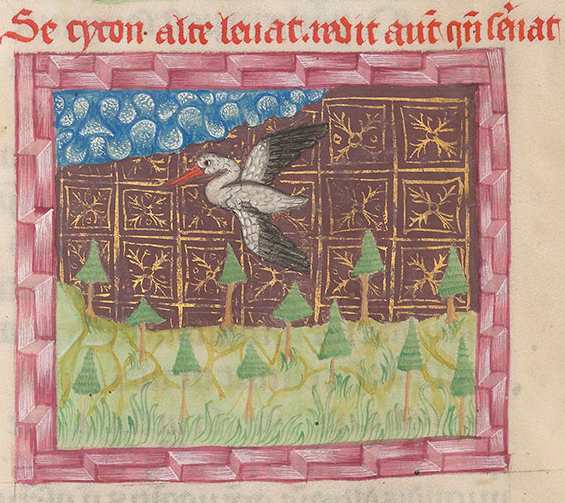 Se cyron· alte leuat. redit aut̄ qn̄ sēnat